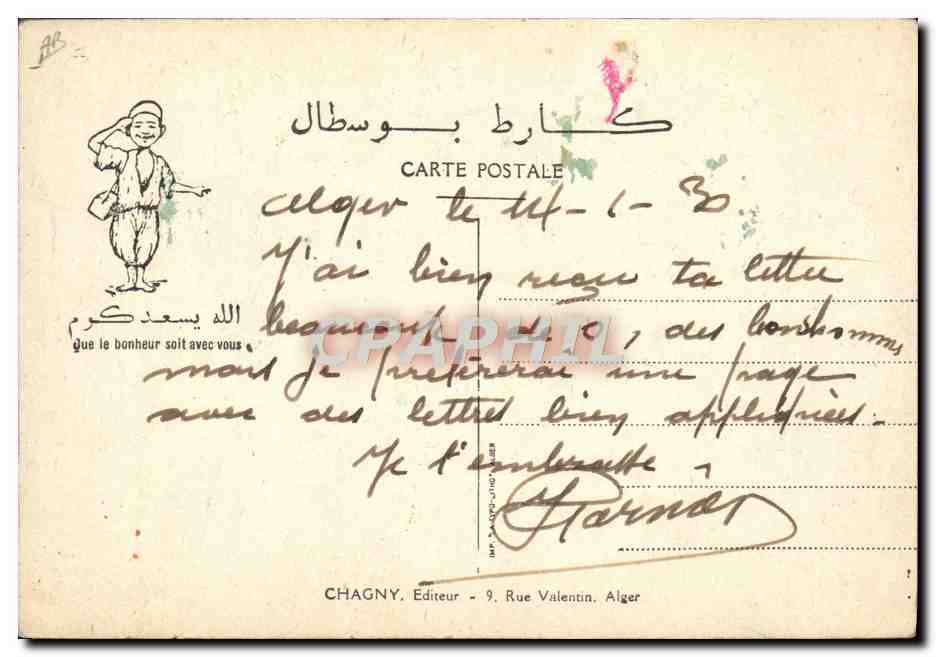 AB
كارط بوسطال
CARTE POSTALE
Alger le 14-1-30
J'ai bien reçu ta lettre
beaucoup de o, des bonshommes
mais je préférerai une page
avec des lettres bien appliquées.
Je t'embrasse,
الله يسعدكوم
Que le bonheur soit avec vous
CPAPHIL
CHAGNY, Editeur - 9, Rue Valentin, Alger